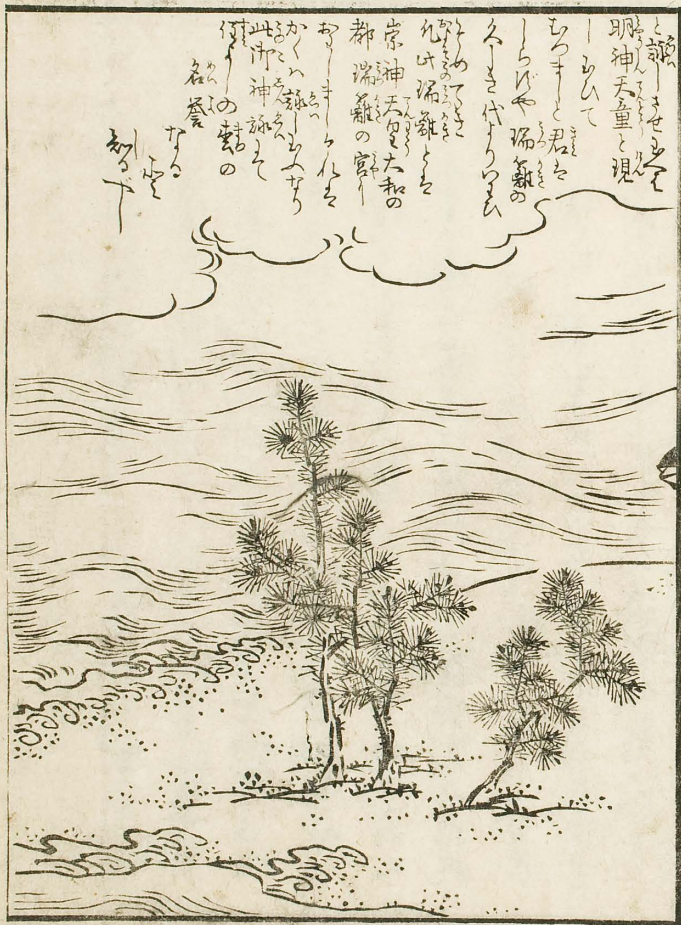 と詠じさせ玉へは
明神天童と現
し玉ひて
むつましと君は
しらなみや瑞籬の
久しき代よりいはひ
そめてき
凡此瑞籬とは
崇神天皇大和の
都瑞籬の宮に
おはしましけれは
かくは詠し玉ふなり
此御神詠こそ
住よしの松の
名誉
なる
よし
知るべし